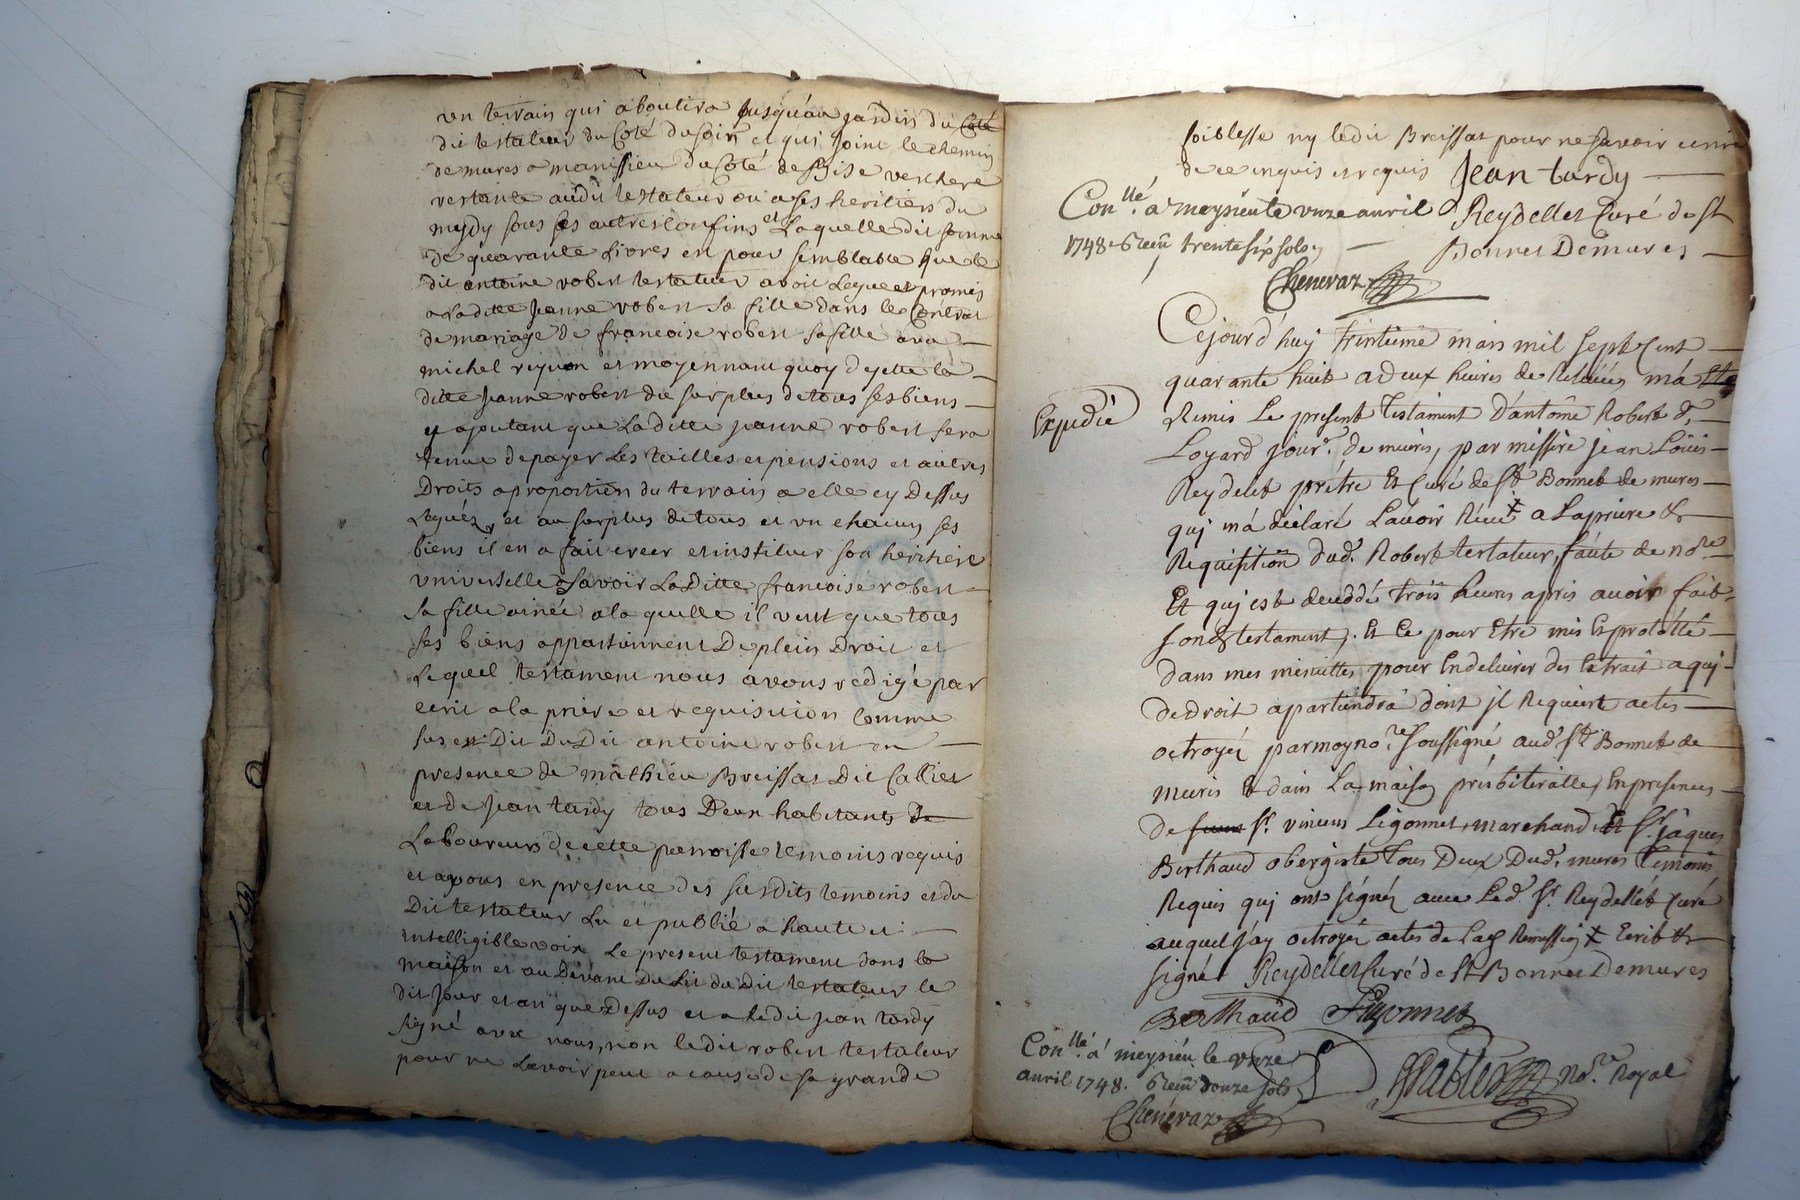 un terrain qui aboutira jusqu'au jardin du Coté
dit testateur du Coté du soir et qui joint le chemin
de mures a manissieu du Coté de bise verchere
restante audit testateur ou a ses heritiers du
mydy sous ses autres Confins et Laquelle dit somme
de quarante Livres est pour semblable que le
dit antoine robert testateur avoit Legué et promis
a Laditte Jeanne robert sa fille dans le Contrat
de mariage de francoise robert sa fille avec
michel reynon et moyennant quoy dejette la
ditte Jeanne robert du surplus de tous ses biens
y ajoutant que La ditte jeanne robert sera
tenue de payer Les tailles et pensions et autres
Droits a proportion du terrain a elle cy Dessus
Legué, et au surplus de tous et un chacun ses
biens il en a fait creer et instituer son heritiere
universelle Savoir La Ditte francoise robert
sa fille ainée a la quelle il veut que tous
ses biens appartiennent De plein Droit et
Lequel testament nous avons redigé par
ecrit a la priere et requisition Comme
sus est Dit Du Dit antoine robert en
presence de mathieu Breissat Dit Callier
et de Jean tardy tous Deux habitants De
Laboureurs de cette parroisse temoins requis
et avons en presence des susdits temoins et du
Dit testateur Lu et publié a haute et
intelligible voix Le present testament dans la
maison et au Devant Du Lit du Dit testateur le
dit Jour et an que Dessus et a le dit jean tardy
signé avec nous, non le dit robert testateur
pour ne Lavoir peut a cause de sa grande
foiblesse ny ledit Breissat pour ne Savoir ecrire
de ce enquis et requis Jean tardy
Con.llé a meysieu le unze avril
1748. Receu trente six sols
Reydellet Curé de St
Bonnet De mures
Chenevaz
Cejourd'huy trentieme mars mil sept Cent
quarante huit a deux heures de Relevées m'a Ete
Expedié
Remis Le present Testament D'antoine Robert d.
Loyard jour.r de mures, par missire jean Loüis
Reydelet prêtre Et Curé de St Bonnet de mures
qui m'a déclaré L'avoir Récu a La priere &
Requisition dud. Robert testateur, faute de no.re
Et qui est décédé trois heures apres avoir fait
son testament, Et Ce pour Etre mis Et
dans mes minuttes pour En delivrer des Extrait a qui
de droit apartiendra dont jl Requiert actes
octroyéz par moy no.re soussigné aud. St Bonnet de
mures & dans La maison présbiteralle, En presences
de Sr. vincens Ligonnet, marchand Et Sr. jâques
Berthaud obergiste tous Deux Dud. mures temoins
Requis qui ont signéz avec Led. Sr. Reydellet Curé
auquel j'ay octroyé actes de Lad. Remission Ecrit &
signé Reydellet Curé de St Bonnet De mures
Berthaud Ligonnet
Con.llé a meysieu le unze
avril 1748. Receu douze sols
no.re Royal
Chenevaz